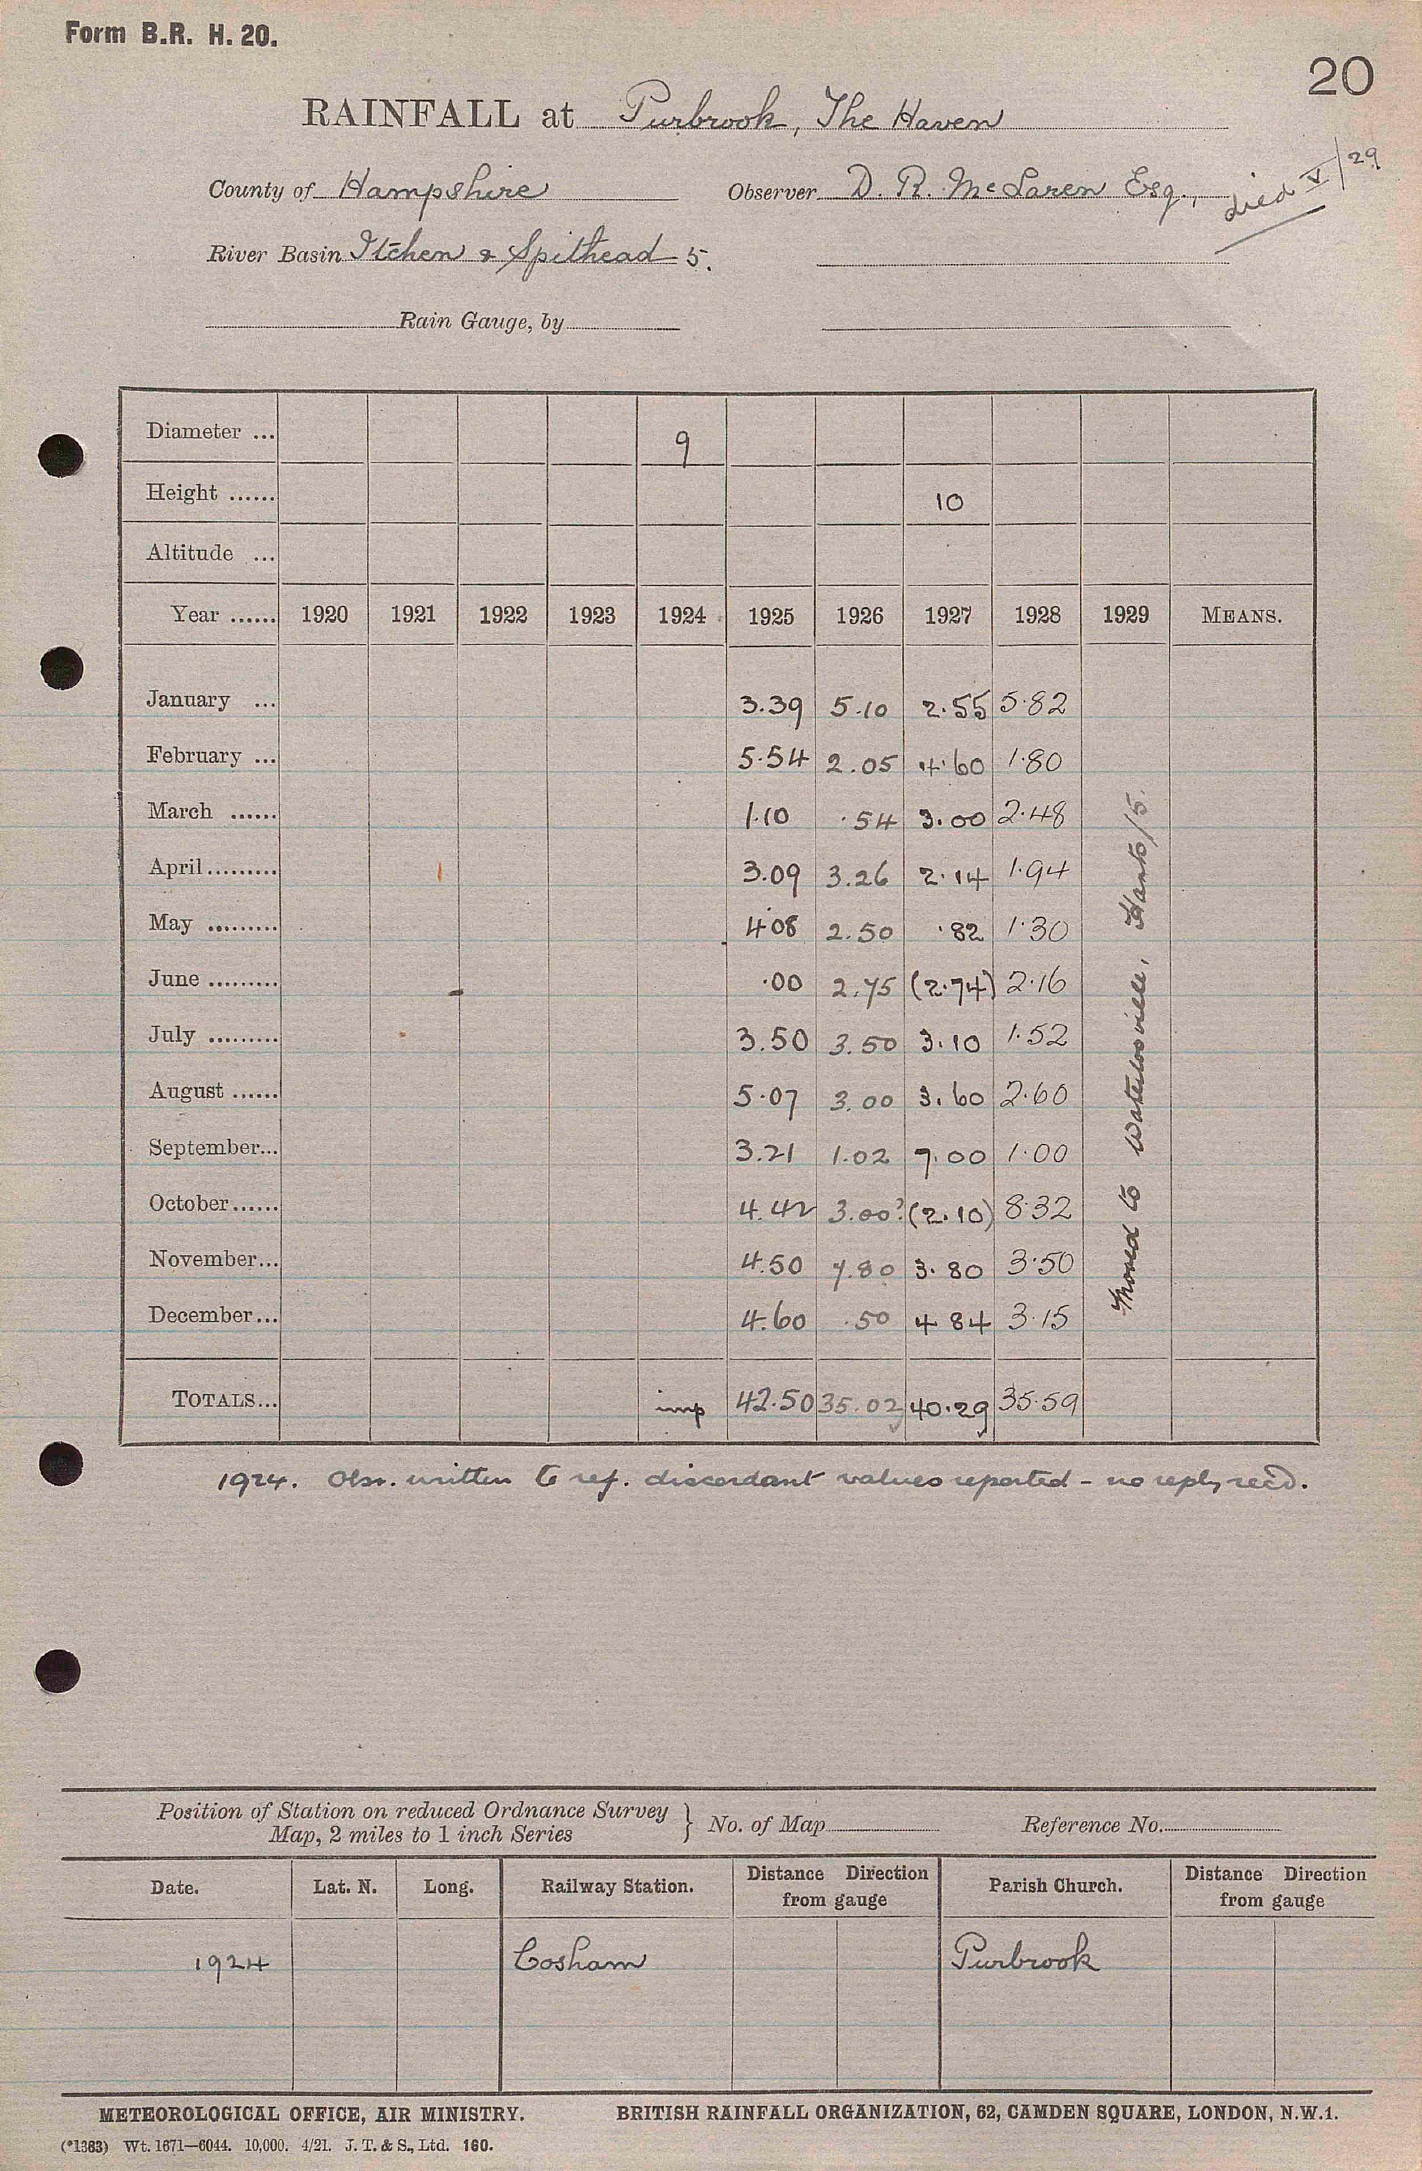 Form B.R. H. 20.
20
RAINFALL at Purbrook, The Haven
County of Hampshire Observer D. R. McLaren Esq., died V/29
River Basin Itchen & Spithead 5.
Rain Gauge, by
Diameter ... 9
Height ...... 10
Altitude ...
Year ...... 1920 1921 1922 1923 1924 1925 1926 1927 1928 1929 MEANS.
January ... 3.39 5.10 2.55 5.82
February ... 5.54 2.05 4.60 1.80
March ...... 1.10 .54 3.00 2.48
April ......... 3.09 3.26 2.14 1.94
May ......... 4.08 2.50 .82 1.30
June ......... .00 2.75 (2.74) 2.16
July ......... 3.50 3.50 3.10 1.52
August ...... 5.07 3.00 3.60 2.60
September... 3.21 1.02 7.00 1.00
October ...... 4.42 3.00? (2.10) 8.32
November... 4.50 7.80 3.80 3.50
December... 4.60 .50 4.84 3.15
Moved to Waterlooville, Hants/5.
TOTALS... imp 42.50 35.02 40.29 35.59
1924. Obsr. written to ref. discordant values reported - no reply recd.
Position of Station on reduced Ordnance Survey
Map, 2 miles to 1 inch Series } No. of Map Reference No.
Date. Lat. N. Long. Railway Station. Distance Direction from gauge Parish Church. Distance Direction from gauge
1924 Cosham Purbrook
METEOROLOGICAL OFFICE, AIR MINISTRY. BRITISH RAINFALL ORGANIZATION, 62, CAMDEN SQUARE, LONDON, N.W.1.
(*1383) Wt. 1671—6044. 10,000. 4/21. J. T. & S., Ltd. 160.